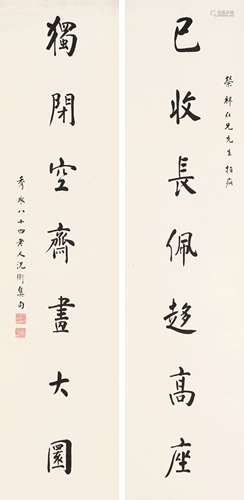 榮祥仁兄先生指疵
已收長佩趍高座
獨閉空齋畫大圜
秀水八十四老人沈衛集句